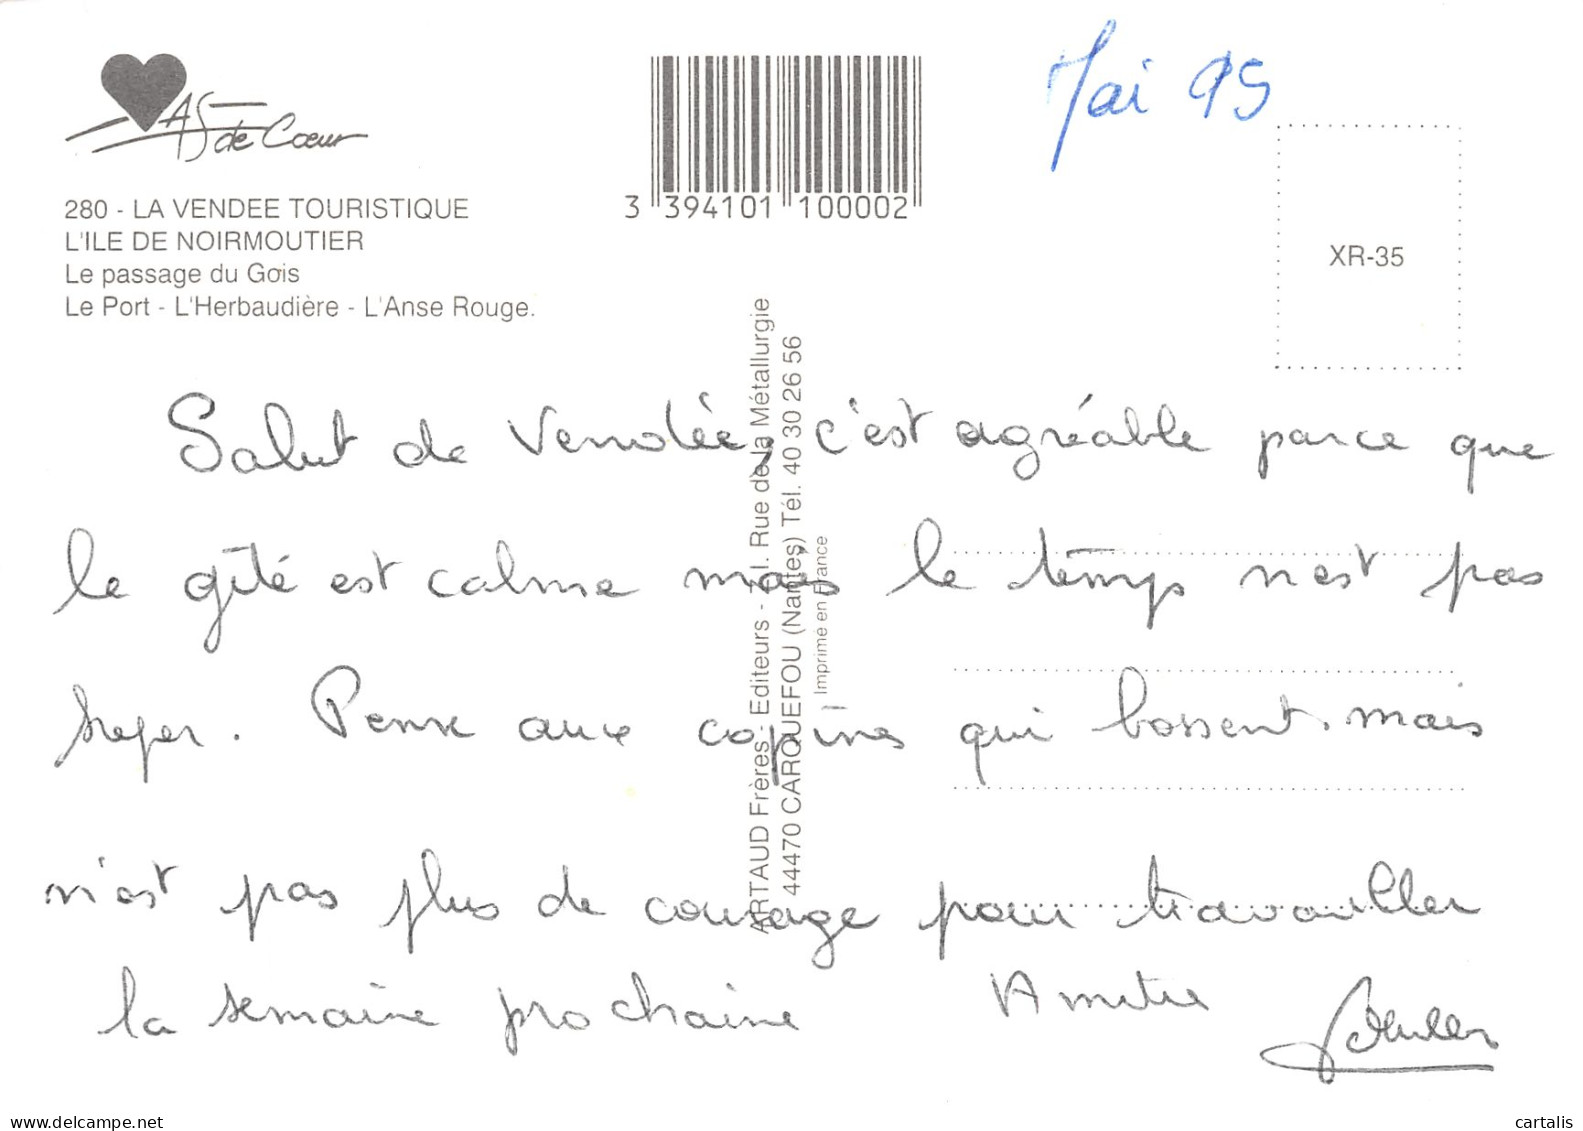 As de Cœur
280 - LA VENDEE TOURISTIQUE
L'ILE DE NOIRMOUTIER
Le passage du Gois
Le Port - L'Herbaudière - L'Anse Rouge.
3 394101 100002
Mai 95
XR-35
ARTAUD Frères - Editeurs - Rue de la Métallurgie
44470 CARQUEFOU (Nantes) Tél. 40 30 26 56
Imprimé en France
Salut de Vendée, c'est agréable parce que
le gîte est calme mais le temps n'est pas
super. Pense aux copines qui bossent mais
n'est pas plus de courage pour travailler
la semaine prochaine Amitié
www.delcampe.net
cartalis